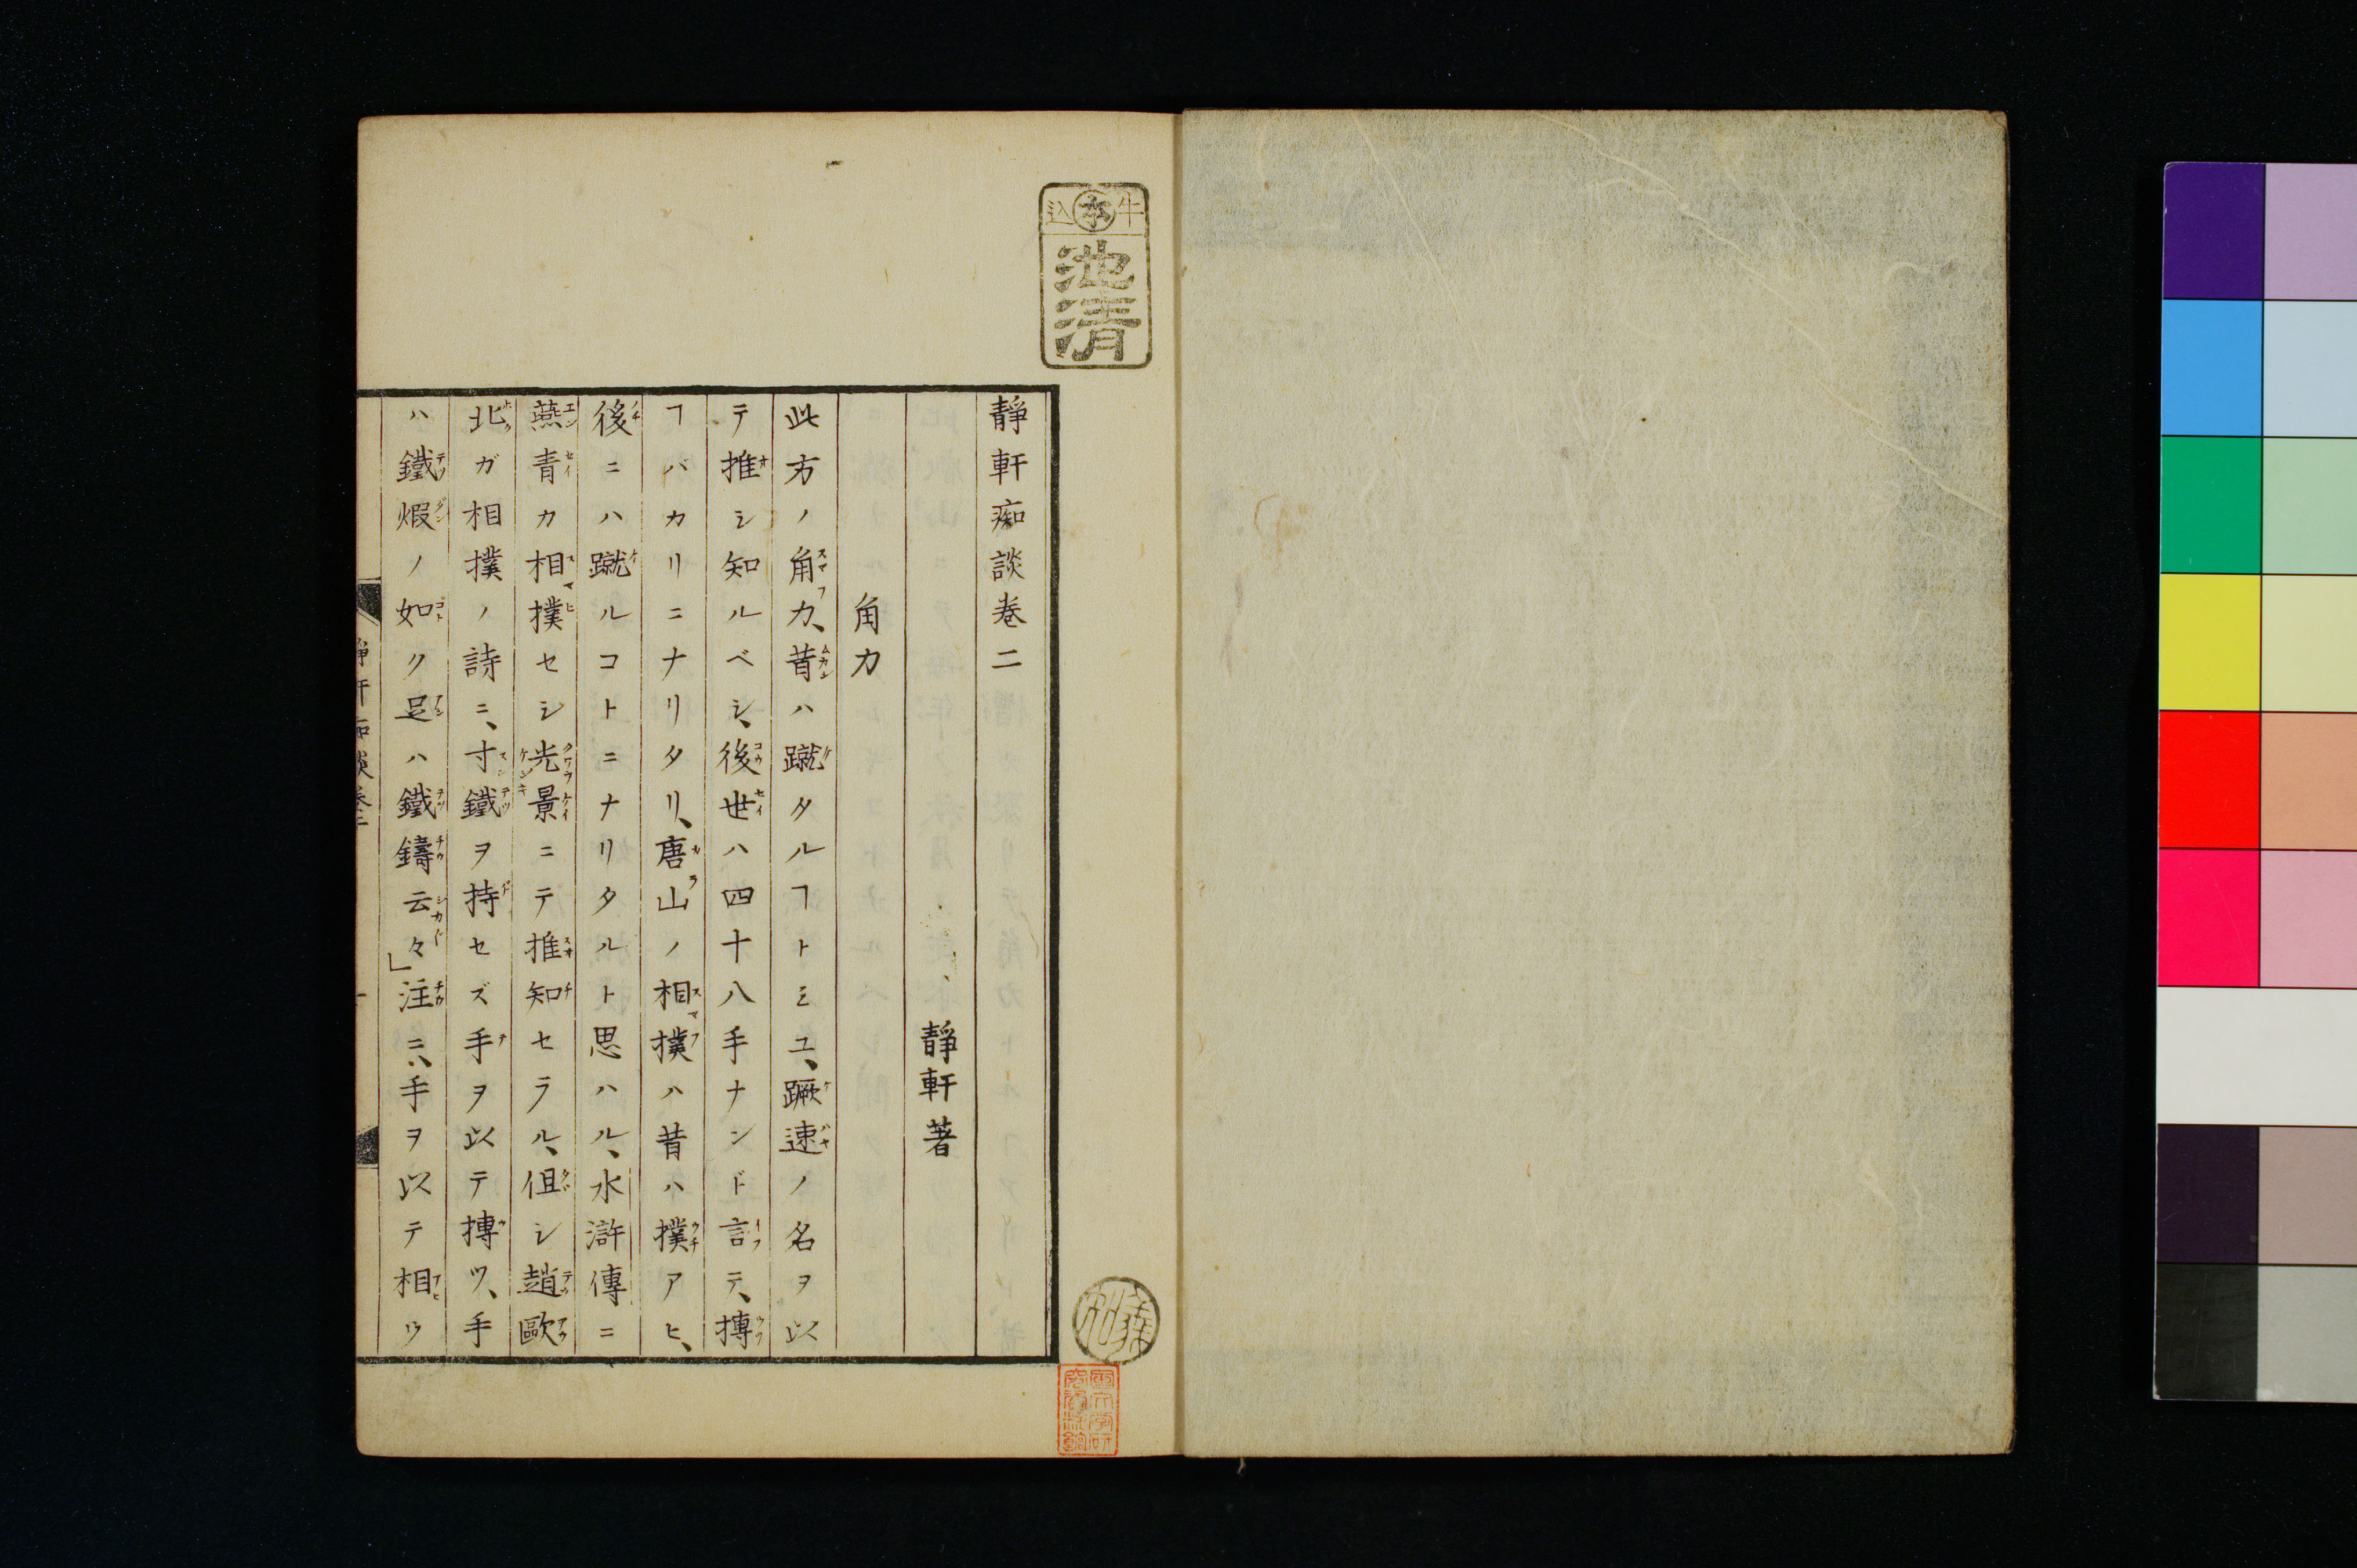 牛本込
池清
靜軒痴談卷二
靜軒著
角力
此方ノ角力、昔ハ蹴タルヿトミユ、蹶速ノ名ヲ以
テ推シ知ルベシ、後世ハ四十八手ナンド言テ、搏
ヿバカリニナリタリ、唐山ノ相撲ハ昔ハ撲アヒ、
後ニハ蹴ルコトニナリタルト思ハル、水滸傳ニ
燕青カ相撲セシ光景ニテ推知セラル、但シ趙歐
北ガ相撲ノ詩ニ、寸鐵ヲ持セズ手ヲ以テ搏ツ、手
ハ鐵煆ノ如ク足ハ鐵鑄云々」注ニ、手ヲ以テ相ツ